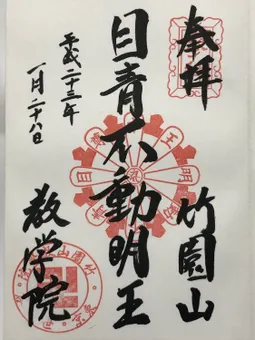 奉拝
竹園山
目青不動明王
平成二十三年
一月二十八日
教学院